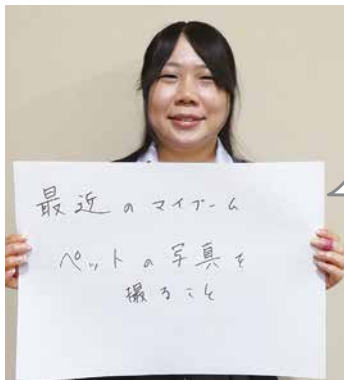 最近のマイブーム
ペットの写真を
撮ること